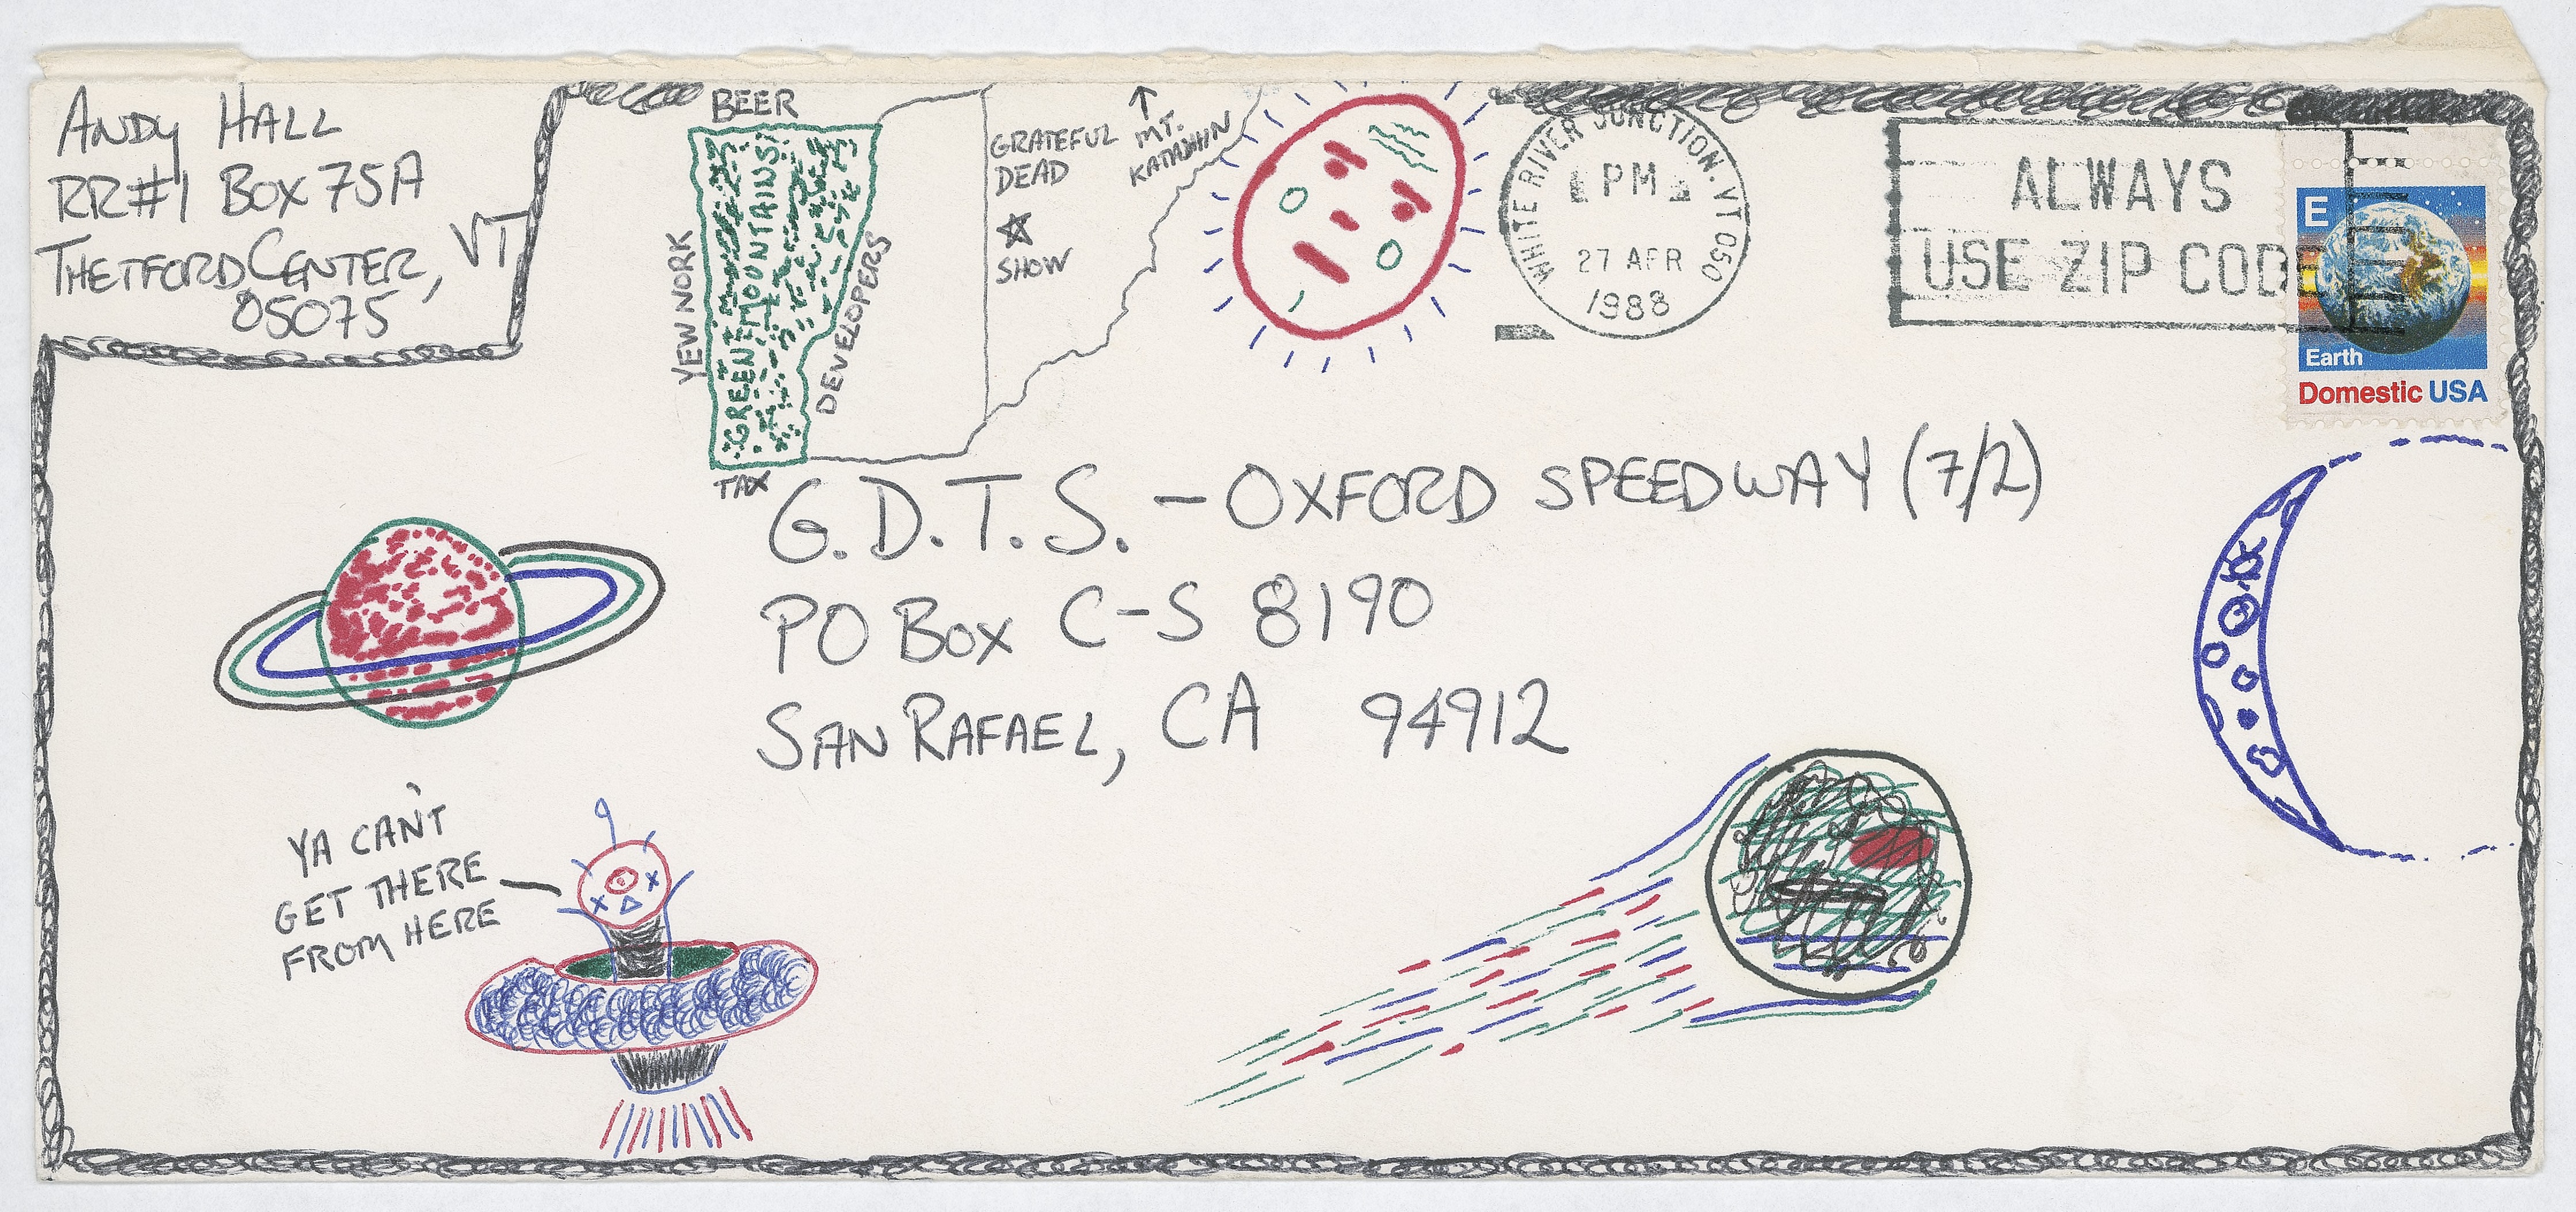 ANDY HALL
RR#1 BOX 75A
THETFORD CENTER, VT
05075
BEER
YEW NORK
GREEN MOUNTAINS
DEVELOPERS
TAX
GRATEFUL
DEAD
SHOW
MT.
KATAHHN
WHITE RIVER JUNCTION, VT 050
PM
27 APR
1988
ALWAYS
USE ZIP CODE
E
Earth
Domestic USA
G.D.T.S. - OXFORD SPEEDWAY (7/2)
PO BOX C-S 8190
SAN RAFAEL, CA 94912
YA CAN'T
GET THERE
FROM HERE